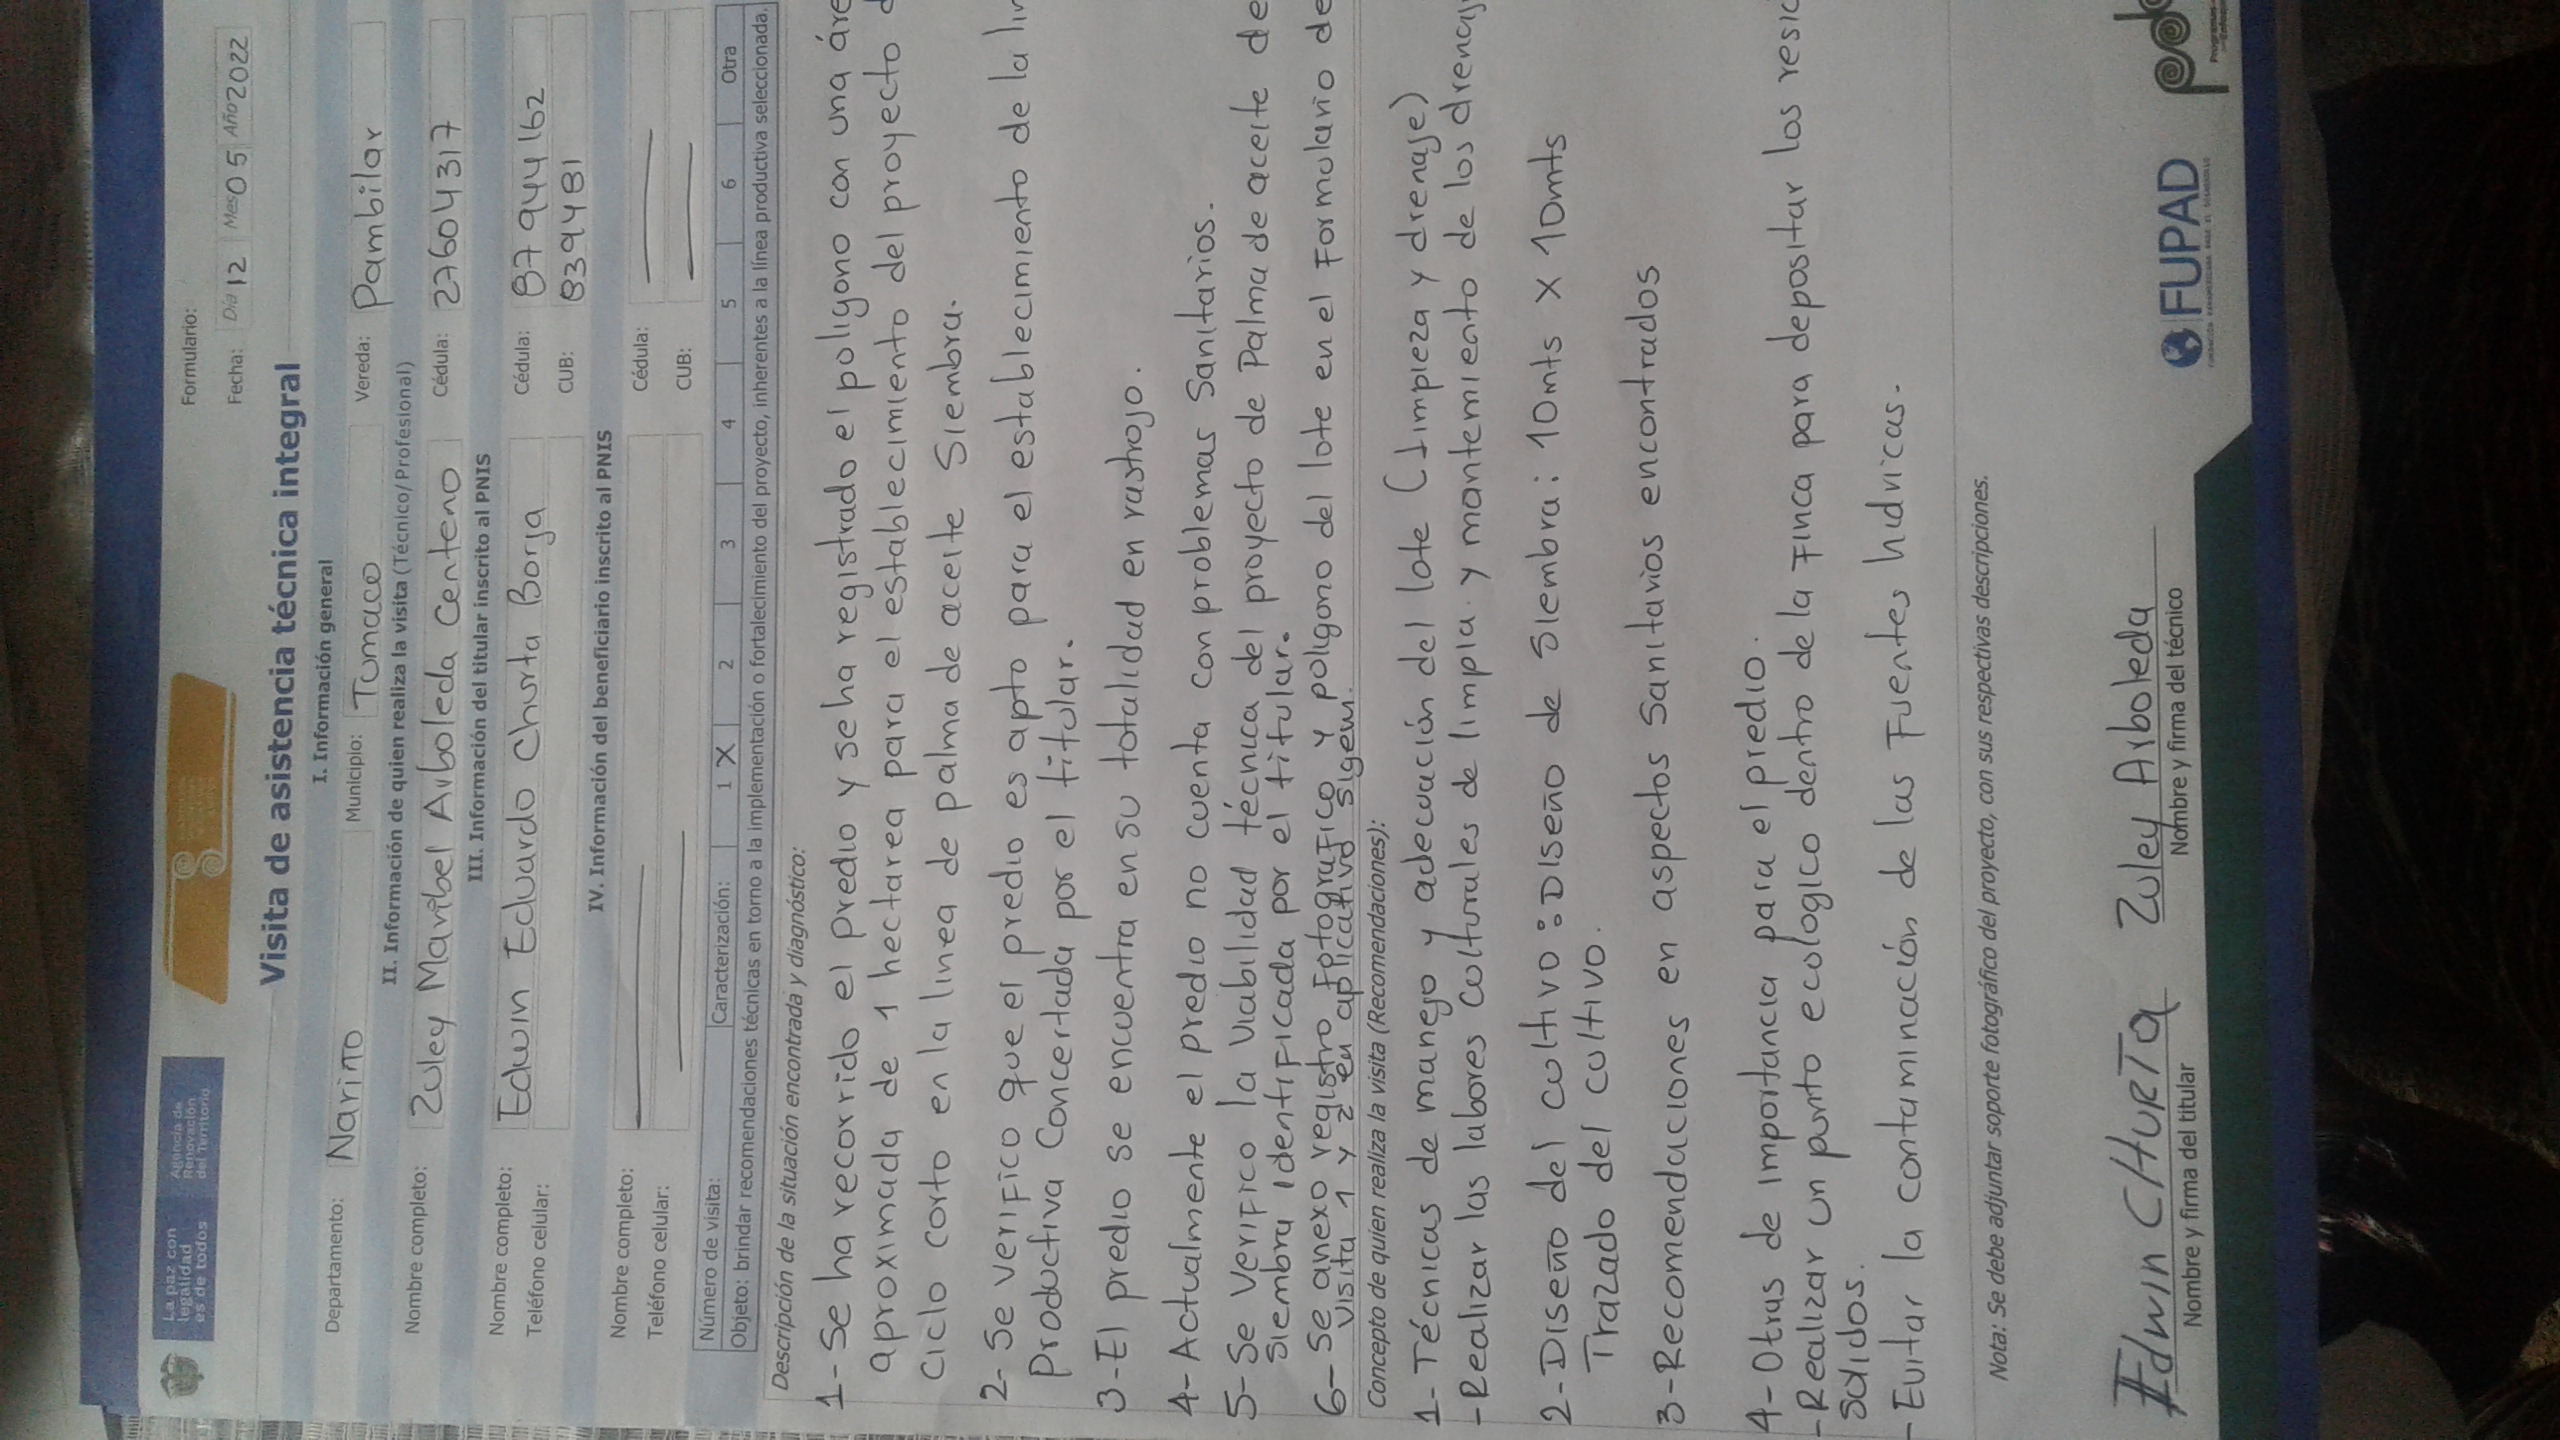 La paz con
legalidad
es de todos
Agencia de
Renovación
del Territorio
Formulario:
Fecha: Día 12 Mes 05 Año 2022
Visita de asistencia técnica integral
I. Información general
Departamento: Nariño Municipio: Tumaco Vereda: Pambilar
II. Información de quien realiza la visita (Técnico/Profesional)
Nombre completo: Zuley Maribel Arboleda Centeno Cédula: 27604317
III. Información del titular inscrito al PNIS
Nombre completo: Edwin Eduardo Churta Borja Cédula: 87944162
Teléfono celular: CUB: 8394481
IV. Información del beneficiario inscrito al PNIS
Nombre completo: Cédula:
Teléfono celular: CUB:
Número de visita: Caracterización: 1 X 2 3 4 5 6 Otra
Objeto: brindar recomendaciones técnicas en torno a la implementación o fortalecimiento del proyecto, inherentes a la línea productiva seleccionada.
Descripción de la situación encontrada y diagnóstico:
1- Se ha recorrido el predio y se ha registrado el poligono con una áre
aproximada de 1 hectarea para el establecimiento del proyecto d
Ciclo corto en la linea de palma de aceite Siembra.
2- Se verifico que el predio es apto para el establecimiento de la lin
Productiva Concertada por el titular.
3- El predio se encuentra en su totalidad en rastrojo.
4- Actualmente el predio no cuenta con problemas Sanitarios.
5- Se verifico la viabilidad técnica del proyecto de Palma de aceite de
Siembra identificada por el titular.
6- Se anexo registro Fotografico y poligono del lote en el Formulario de
Visita 1 y 2 en aplicativo sigem.
Concepto de quien realiza la visita (Recomendaciones):
1- Técnicas de manejo y adecuación del lote (Limpieza y drenaje)
- Realizar las labores culturales de limpia y mantemiento de los drenaj
2- Diseño del cultivo: Diseño de Siembra: 10mts x 10mts
Trazado del cultivo.
3- Recomendaciones en aspectos Sanitarios encontrados
4- Otras de importancia para el predio.
- Realizar un punto ecologico dentro de la Finca para depositar los resid
Solidos.
- Evitar la contaminación de las Fuentes hidricas.
Nota: Se debe adjuntar soporte fotográfico del proyecto, con sus respectivas descripciones.
Edwin CHURTA Zuley Arboleda
Nombre y firma del titular Nombre y firma del técnico
FUPAD